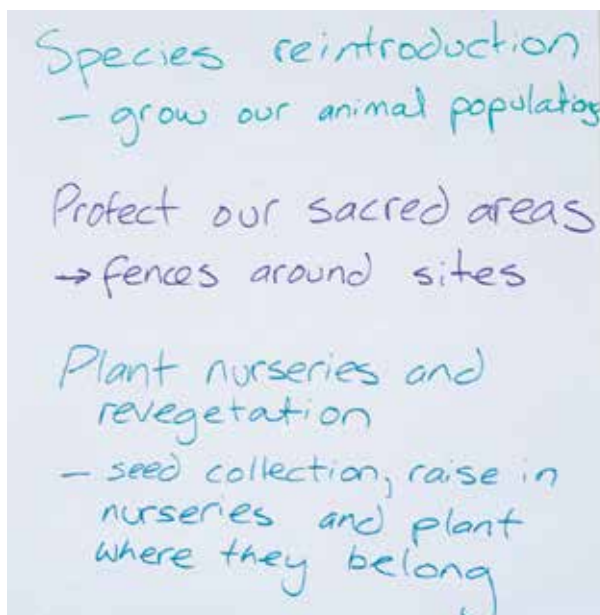 Species reintroduction
– grow our animal population
Protect our sacred areas
→ fences around sites
Plant nurseries and
revegetation
– seed collection, raise in
nurseries and plant
where they belong